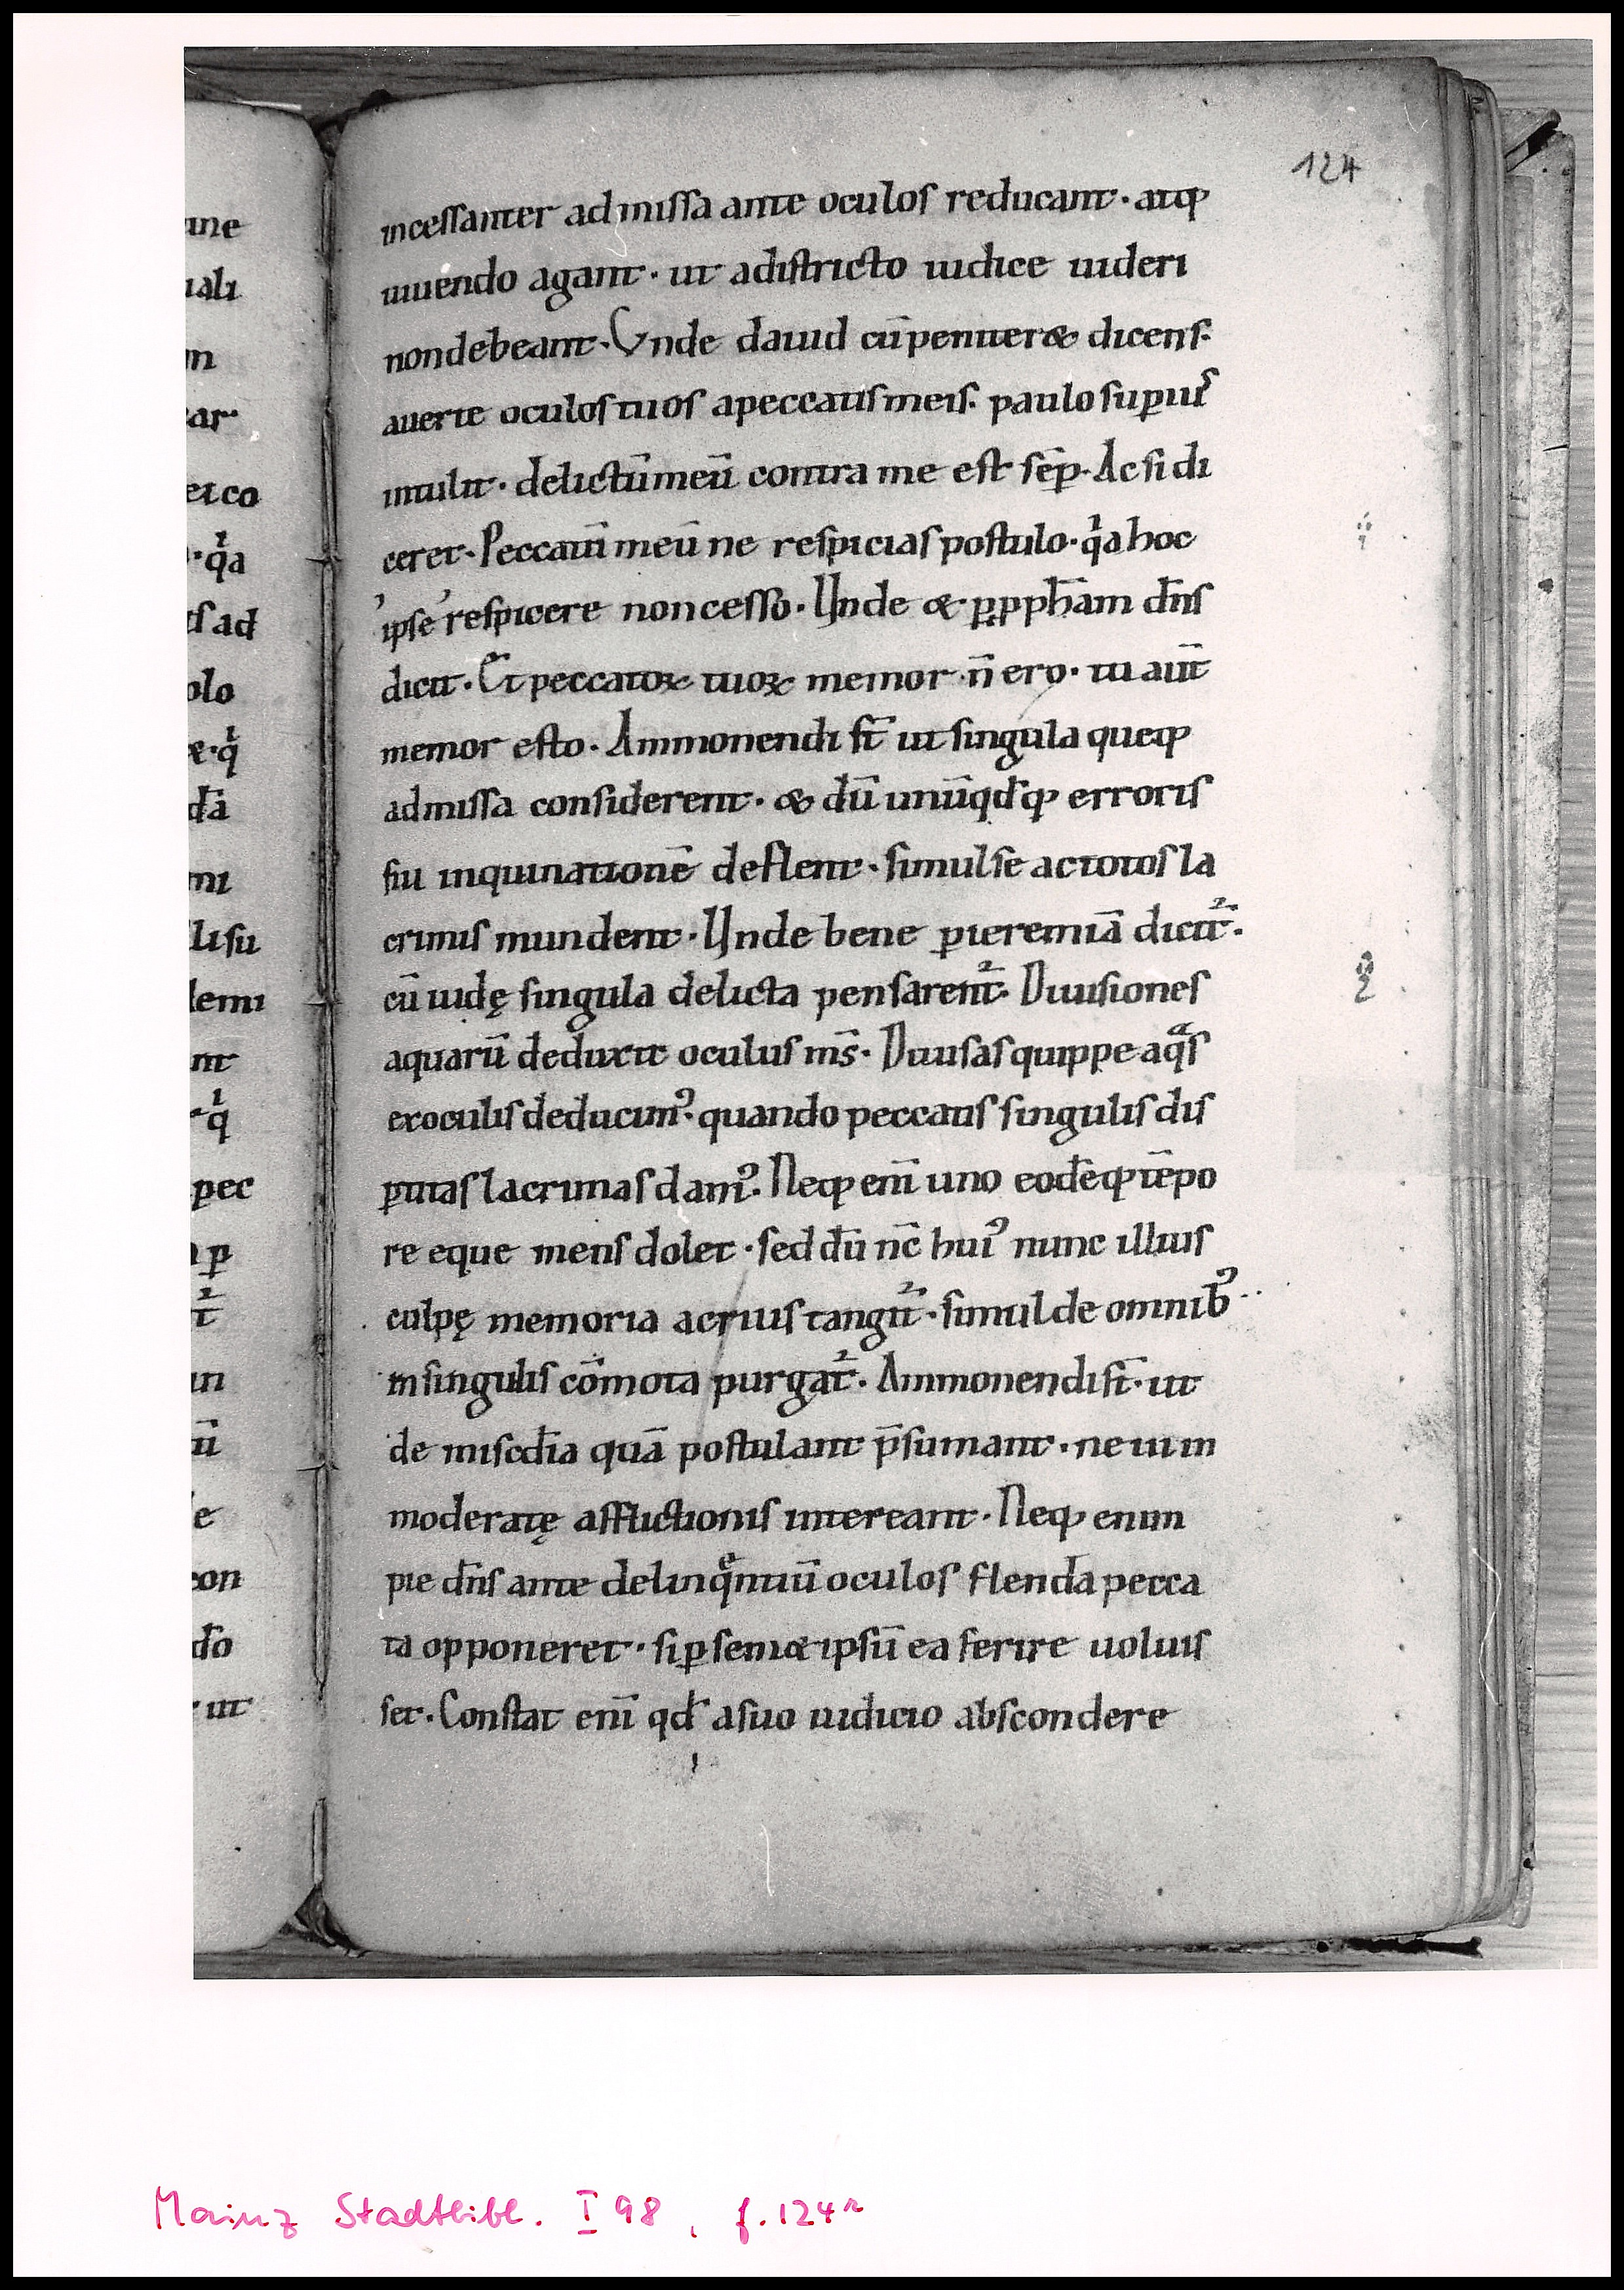 124
ine
uali
m
ar
et co
qͥa
tſ ad
olo
e·qͥ
da̅
mi
liſu
lemi
nt
qͥ
pec
ꝑ
t᷑
in
ū
e
con
do̅
ut
inceſſanter admiſſa ante oculoſ reducant · atqꝫ
uiuendo agant · ut adiſtricto iudice uideri
nondebeant · Vnde dauid cū peniteret dicenſ·
auerte oculoſ tuoſ apeccatiſ meiſ· paulo ſuꝑiuſ
intulit · delictū meū contra me eſt ſēp · Ac ſi di
ceret · Peccatū meū ne reſpiciaſ poſtulo · qͥa hoc
ipſe reſpicere non ceſſo · Unde & · ꝑ ꝓpham̅ dn̅ſ
dicit · Et peccatoꝝ tuoꝝ memor n̅ ero · tu aūt
memor eſto · Ammonendi ſt̅ ut ſingula queqꝫ
admiſſa conſiderent · & dū unūqd̅qꝫ erroriſ
ſui inquinationē deflent · ſimul ſe ac totoſ la
crimiſ mundent · Unde bene ꝑieremiā dicit᷑ ·
cū iudę ſingula delicta penſarent᷑ · Diuiſioneſ
aquarū deduxit oculuſ mſ̅ · Diuiſaſ quippe aqͣſ
exoculiſ deducimꝰ · quando peccatiſ ſinguliſ diſ
ꝑtitaſ lacrimaſ damꝰ · Neqꝫ eni̅ uno eodēqꝫ tēpo
re eque menſ dolet · ſed dū nc̅ huiꝰ nunc illiuſ
culpę memoria acriuſ tangit᷑ · ſimul de omnibꝰ
in ſinguliſ cōmota purgat᷑ · Ammonendi ſt̅ · ut
de miſcdi̅a quā poſtulant p̅ſumant · ne ui im
moderatę afflictioniſ intereant · Neqꝫ enim
pie dn̅ſ ante delinqͤntiū oculoſ flenda pecca
ta opponeret · ſi ꝑ ſemet ipſū ea ferire uoluiſ
ſet · Conſtat eni̅ qd̅ a ſuo iudicio abſcondere
Mainz Stadtbibl. I 98, f. 124r